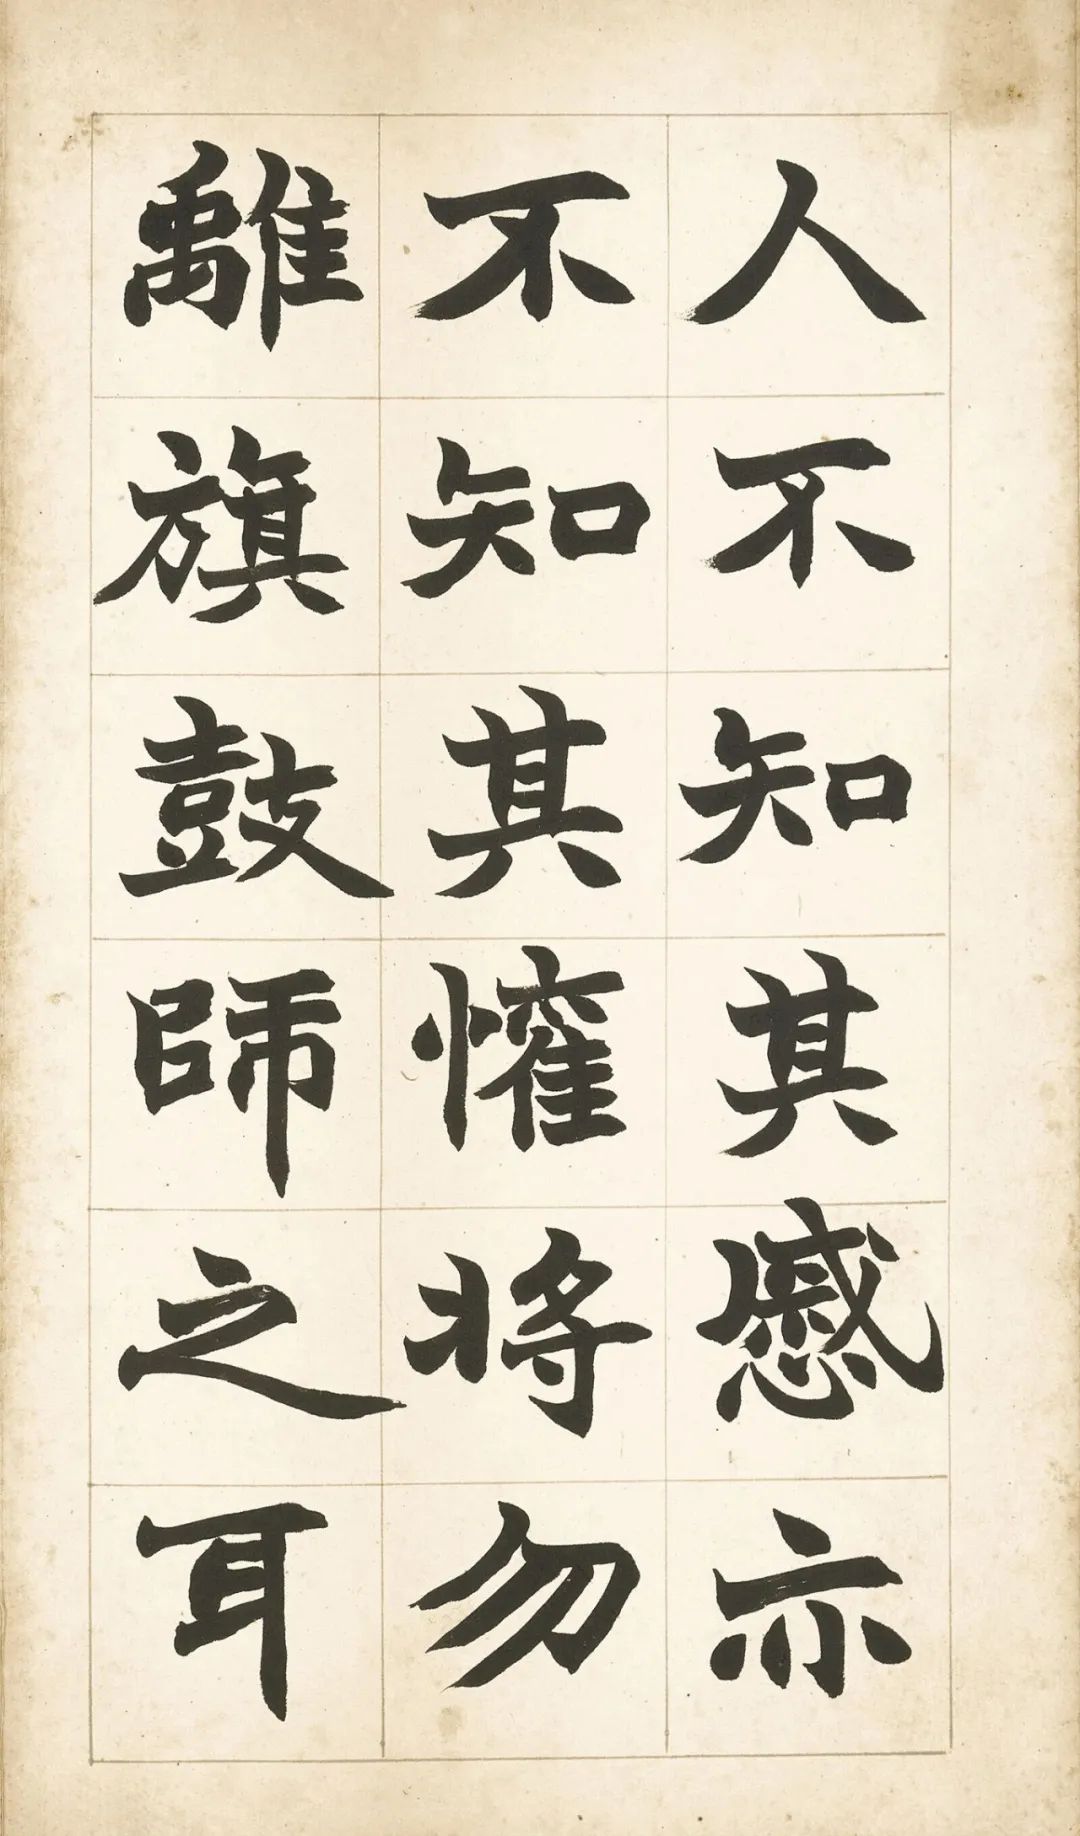 人不知其慼亦
不知其懽將勿
離旗鼓師之耳